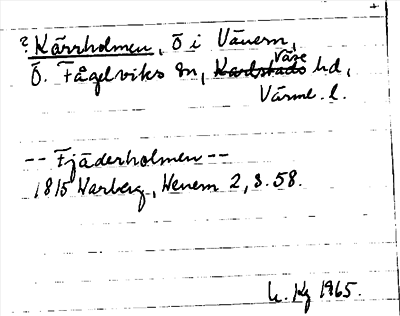 ? Kärrholmen, ö i Vänern,
Ö. Fågelviks sn, Karlstads Väse hd,
Värml. l.
-- Fjäderholmen --
1815 Warberg, Wenern 2, s. 58.
1965.